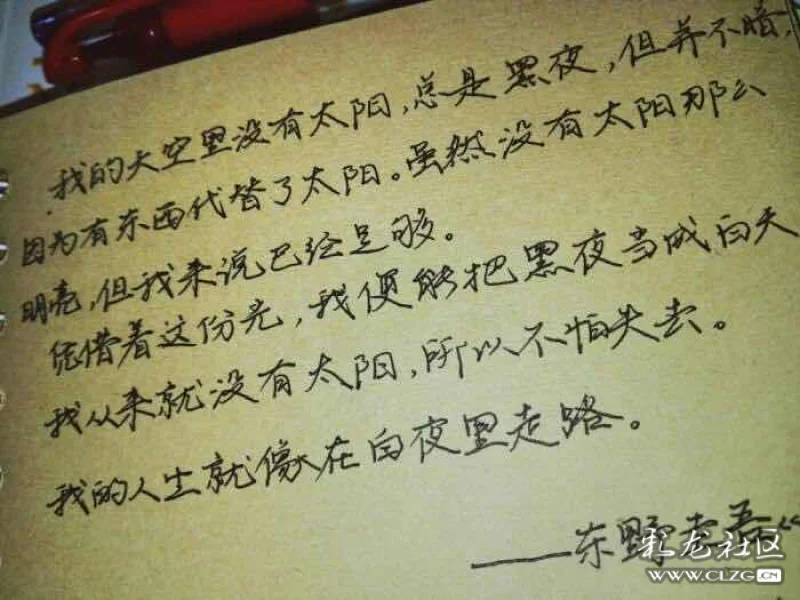 我的天空里没有太阳,总是黑夜,但并不暗,
因为有东西代替了太阳。虽然没有太阳那么
明亮,但我来说已经足够。
凭借着这份光,我便能把黑夜当成白天
我从来就没有太阳,所以不怕失去。
我的人生就像在白夜里走路。
——东野圭吾“
彩龙社区
WWW.CLZG.CN